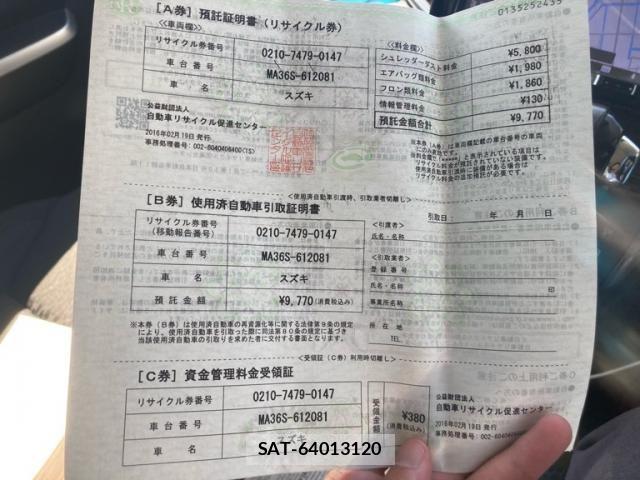 0135252435
【A券】預託証明書（リサイクル券）
<車両欄>
リサイクル券番号 0210-7479-0147
車台番号 MA36S-612081
車名 スズキ
<料金欄>
シュレッダーダスト料金 ¥5,800
エアバッグ類料金 ¥1,980
フロン類料金 ¥1,860
情報管理料金 ¥130
預託金額合計 ¥9,770
公益財団法人
自動車リサイクル促進センター
2016年02月19日 発行
<使用済自動車引渡時、引取業者切離し>
【B券】使用済自動車引取証明書
引取日： 年 月 日
リサイクル券番号
（移動報告番号） 0210-7479-0147
車台番号 MA36S-612081
車名 スズキ
預託金額 ¥9,770（消費税込み）
<引渡者>
氏名・名称
<引取業者>
登録番号
氏名・名称 印
事業所名称
所在地
TEL
※本券（B券）は使用済自動車の再資源化等に関する法律第9条の規定
により、使用済自動車を引取った際に同法第80条の規定に基づき
当該使用済自動車の引取りを求めた者に交付する書面となります。
<受領証（C券）利用時切離し>
【C券】資金管理料金受領証
リサイクル券番号 0210-7479-0147
車台番号 MA36S-612081
車名 スズキ
受領金額 ¥380
（消費税込み）
公益財団法人
自動車リサイクル促進センター
2016年02月19日 発行
SAT-64013120